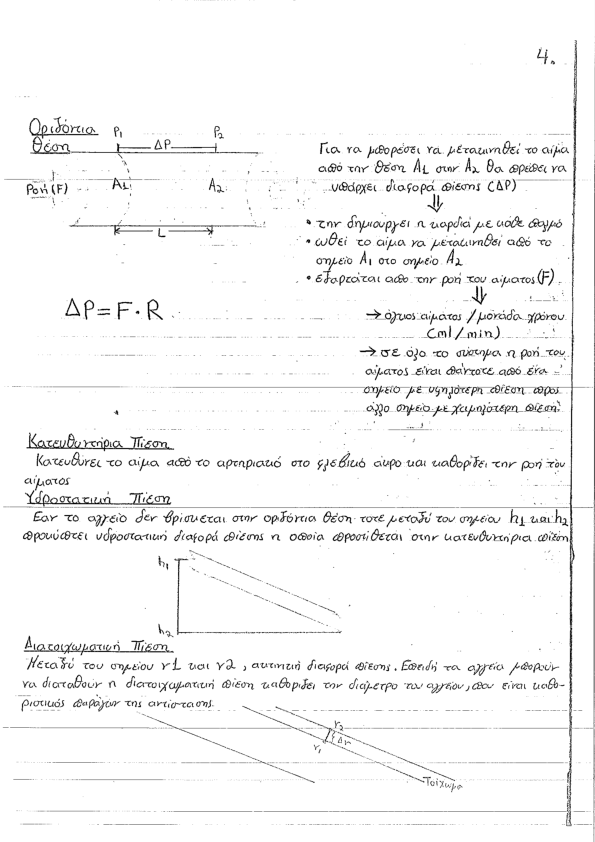 4.
Οριζόντια
θέση
P₁ ΔP P₂
Ροή (F) A₁ A₂
L
Για να μπορέσει να μετακινηθεί το αίμα
από την θέση A₁ στην A₂ θα πρέπει να
υπάρχει διαφορά πίεσης (ΔP)
⇓
• την δημιουργεί η καρδιά με κάθε παλμό
• ωθεί το αίμα να μετακινηθεί από το
σημείο A₁ στο σημείο A₂
• εξαρτάται απο την ροή του αίματος (F)
⇓
→ όγκος αίματος / μονάδα χρόνου
(ml/min)
→ σε όλο το σύστημα η ροή του
αίματος είναι πάντοτε από ένα
σημείο με υψηλότερη πίεση προς
άλλο σημείο με χαμηλότερη πίεση.
ΔP = F · R
Κατευθυντήρια Πίεση
Κατευθύνει το αίμα από το αρτηριακό στο φλεβικό άκρο και καθορίζει την ροή του
αίματος
Υδροστατική Πίεση
Εαν το αγγείο δεν βρίσκεται στην οριζόντια θέση τοτε μεταξύ του σημείου h₁ και h₂
προκύπτει υδροστατική διαφορά πίεσης η οποία προστίθεται στην κατευθυντήρια πίεση
h₁
h₂
Διατοιχωματική Πίεση
Μεταξύ του σημείου r1 και r2, ακτινική διαφορά πίεσης. Επειδή τα αγγεία μπορούν
να διαταθούν η διατοιχωματική πίεση καθορίζει την διάμετρο του αγγείου, που είναι καθο-
ριστικός παράγων της αντίστασης.
r₂
Δr
r₁
Τοίχωμα